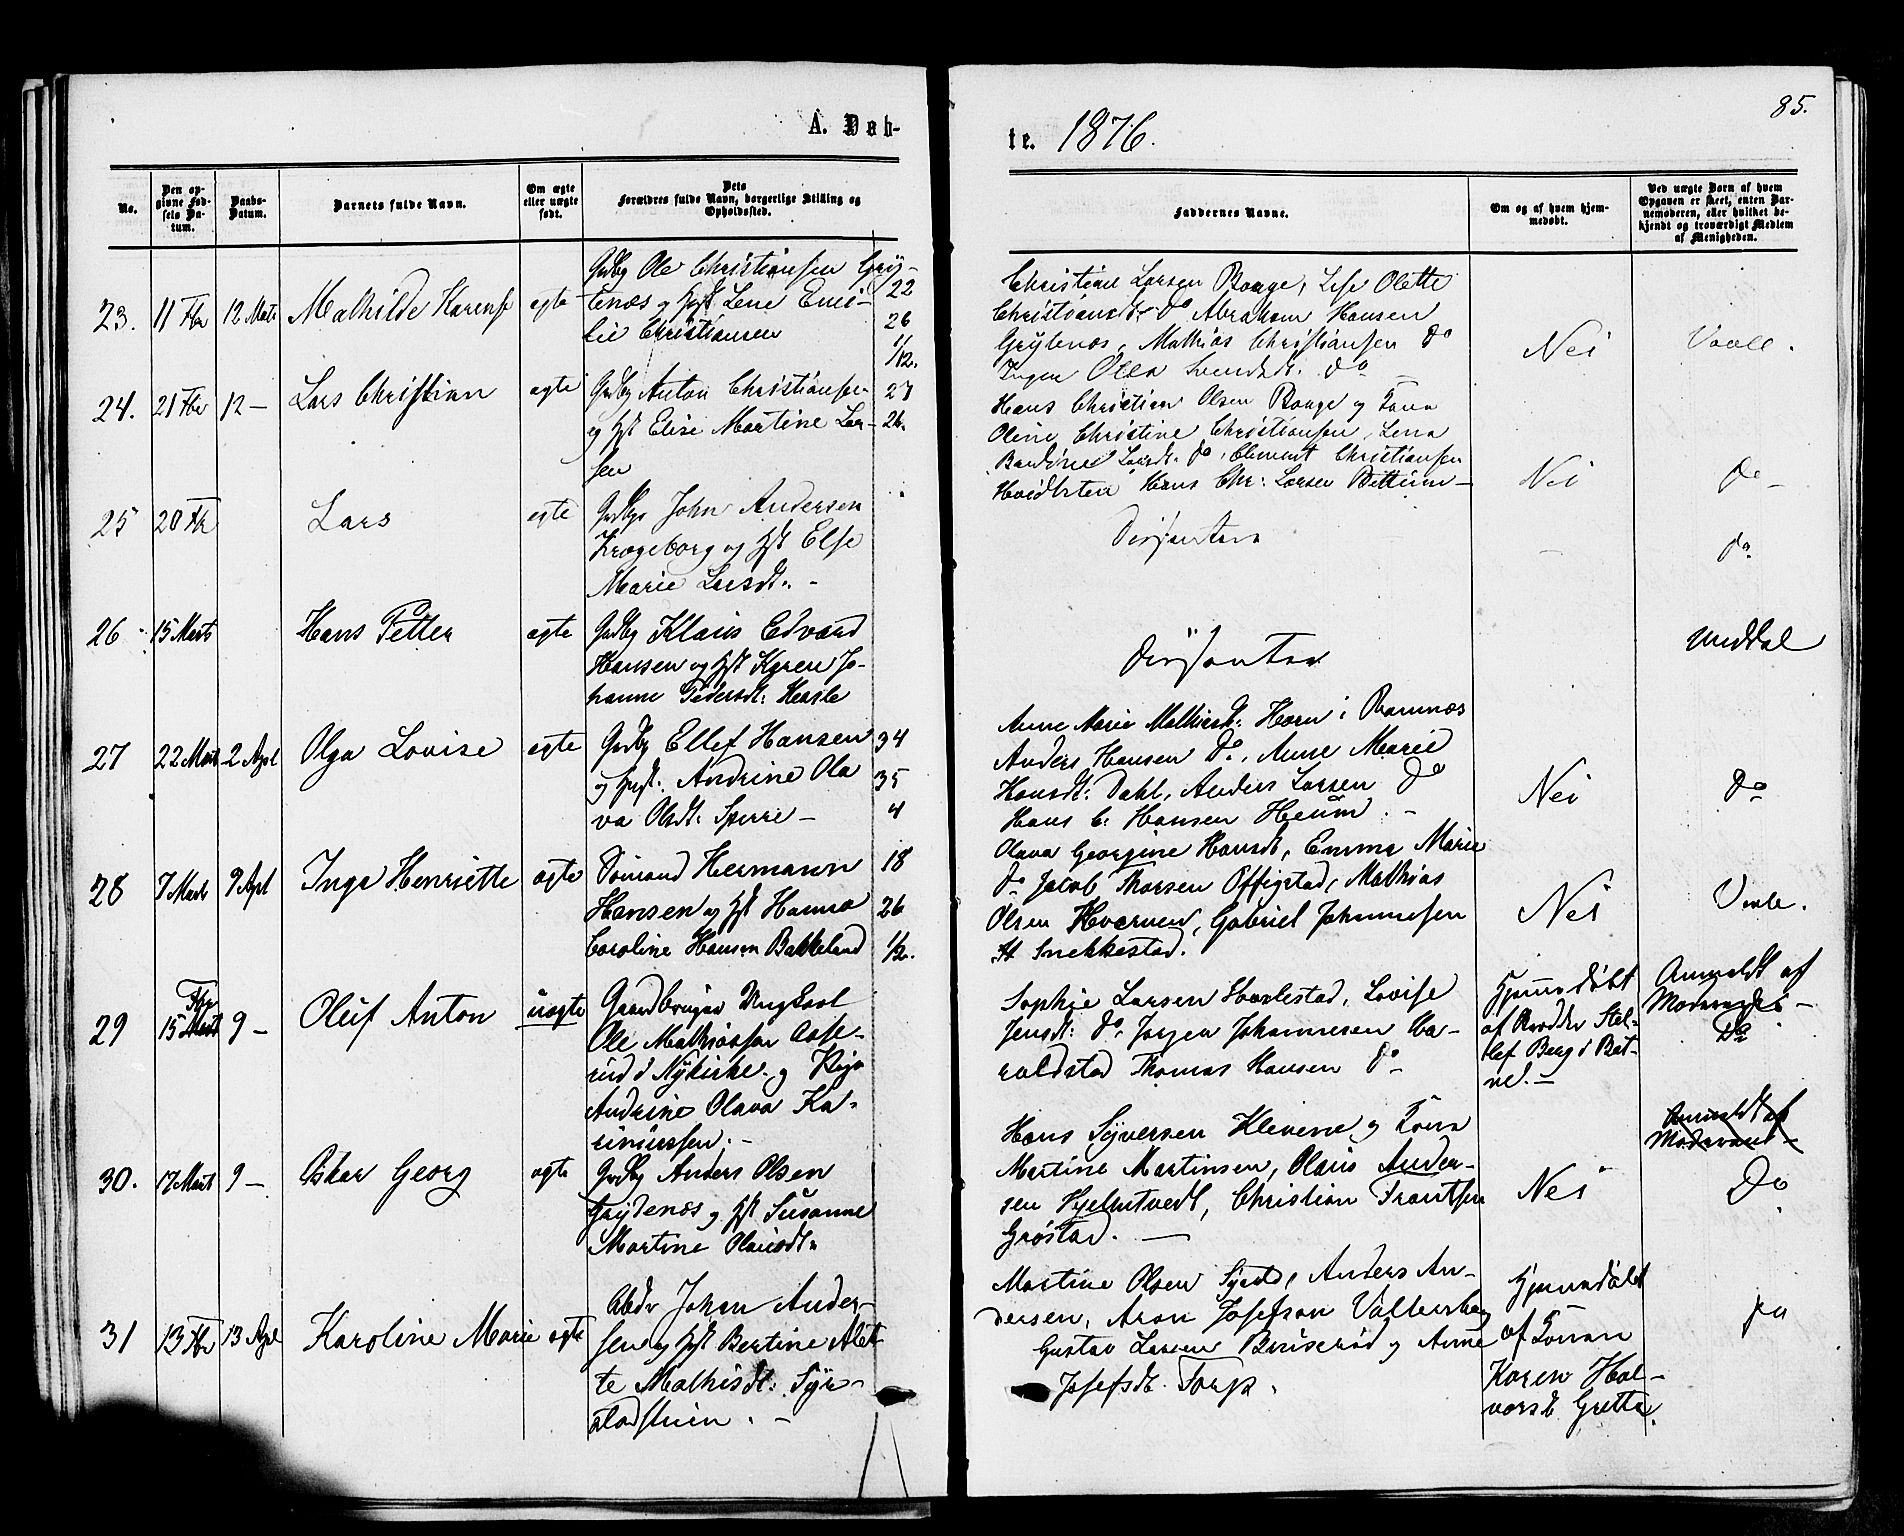 85.
A. Døb-
te. 1876.
No.
Den op-
givne Fød-
sels Da-
tum.
Daabs-
Datum.
Barnets fulde Navn.
Om ægte
eller uægte
født.
Dets
Forældres fulde Navn, borgerlige Stilling og
Opholdssted.
Faddernes Navne.
Om og af hvem hjem-
medøbt.
Ved uægte Børn af hvem
Opgaven er skeet, enten Bar-
nemoderen, eller hvilket be-
kjendt og troværdigt Medlem
af Menigheden.
23. 11 Fbr 12 Marts Mathilde Karense egte
Grdbg Ole Christiansen Gry-
tenæs og Hst Lene Emi-
lie Christiansen
22
26
1/12.
Christian Larsen Borge, Lise Olette
Christiansdt. Do Abraham Hansen
Grytenæs, Mathias Christiansen Do
Inger Olea Svendsdt. Do
Nei
Vaale.
24. 21 Fbr 12 — Lars Christian egte
Grdbg Anton Christiansen
og Hst Elise Martine Lar-
sen
27
26.
Hans Christian Olsen Borge og Kona
Oline Christine Christiansen, Lena
Larsdt. Do, Clement Christiansen
Hvidsten Hans Chr: Larsen
Nei
Do —
25 20 Fbr Lars egte
Grdbg John Andersen
Krogeborg og Hst Else
Marie Larsdt. —
Disjentera
—
Do
26 15 Marts Hans Petter egte
Grdbg Klaus Edvard
Hansen og Hst Karen Jo-
hanne Pedersdt:
Disjentera
Undal
27 22 Marts 2 Apl Olga Lovise egte
Grdbg Ellef Hansen
og Hust. Andrine Ola
va Olsdt: Sperre —
34
35
4
Anne Marie Mathisdt: Horn i Ramnæs
Anders Hansen Do, Anne Marie
Hansdt: Dahl, Anders Larsen Do
Hans C: Hansen Heum. —
Nei
Do
28 7 Marts 9 Apl Inga Henriette egte
Sømand Hermann
Hansen og Hst Hanna
Caroline Hansen Bakkeland
18
26
1/2.
Olava Georgine Hansdt, Emma Marie
Do Jacob Thorsen Offigstad, Mathias
Olsen Hvarnes, Gabriel Johannesen
St Snekkestad.
Nei
Vaale.
29 Fbr
15 Marts 9 — Oluf Anton uegte
Gaardbruger Ungkarl
Ole Mathiassen Aase-
rud i Nykirke og Pige
Andrine Olava Ka-
rinussen. —
Sophie Larsen Haarlestad, Lovise
Jensdt: Do, Jørgen Johannesen Ha-
raldstad Thomas Hansen Do
Hjemmedøbt
af Stel-
lef Berg i Bot-
ne. —
Anmeldt af
Do
30. 17 Marts 9 — Oskar Georg egte
Grdbg Anders Olsen
Grydenæs og Hst Susanne
Martine Olausdt.
Hans Syversen Klevene og Kona
Martine Martinsen, Olaus Ander-
sen Hjelmtvedt, Christian Frantsen
Grøstad. —
Nei
Anmeldt af
Do
31 13 Fbr 13 Apl Karoline Marie egte
Abdr Johan Ander-
sen og Hst Bertine Alet-
te Mathisdt: Syr-
stadstuen. —
Martine Olsen, Anders An-
dersen, Aron Josefsen Vallersberg
Gustav Larsen Bruserød og Anne
Josefsdt. Torp.
Hjemmedøbt
af Konen
Karen Hal-
vorsdt Gretta.